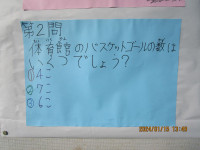 第2問
体育館のバスケットゴールの数は
いくつでしょう？
①4こ
②7こ
③6こ